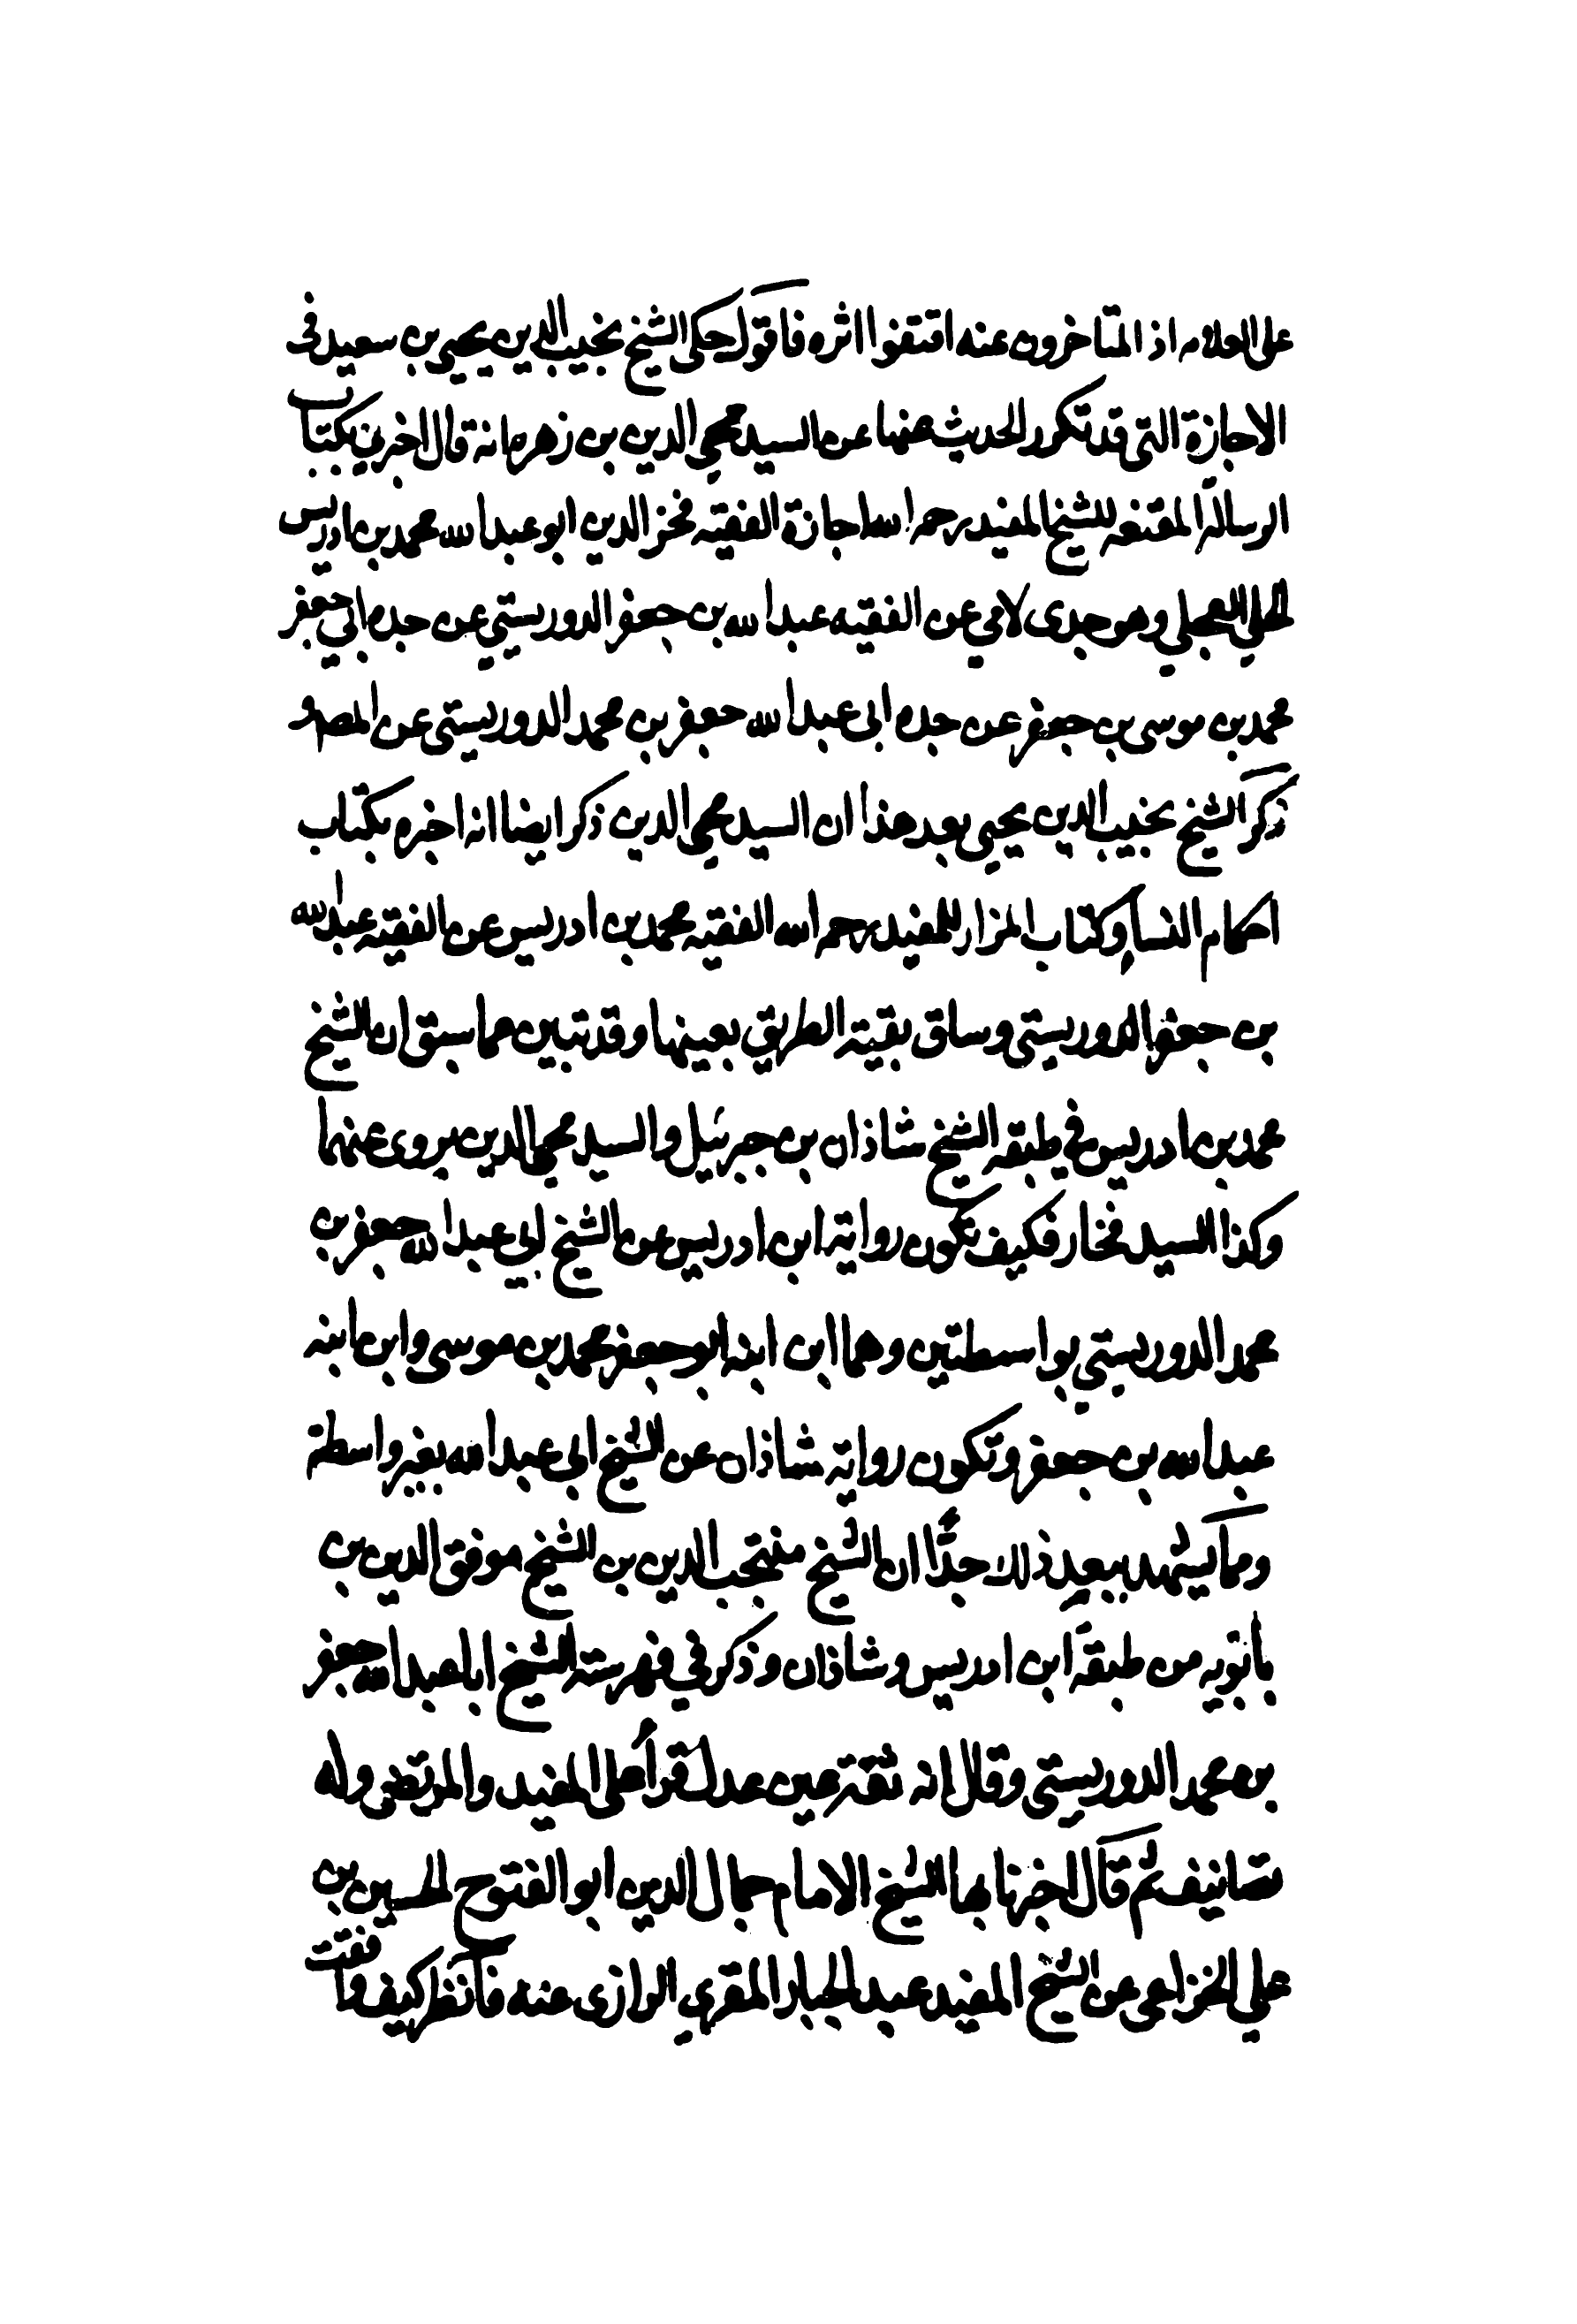 على العلامه اذ المتاخرون عنه اقتفوا اثره فاقول حكى الشيخ نجيب الدين يحيى بن سعيد في
الاجازة التي قد تكرر الحديث عنها عن السيد محيي الدين بن زهره انه قال اخبرني بكتاب
الرسالة المقنعه للشيخ المفيد رحمه الله اجازة الفقيه فخر الدين ابو عبد الله محمد بن ادريس
الحلي العجلي وهو جدى لامي عن الفقيه عبد الله بن جعفر الدوريستي عن جده ابي جعفر
محمد بن موسى بن جعفر عن جده ابى عبد الله جعفر بن محمد الدوريستى عن المصنف و
ذكر الشيخ نجيب الدين يحيى بعد هذا ان السيد محيي الدين ذكر ايضا انه اخبره بكتاب
احكام النساء وكتاب المزار للمفيد رحمه الله الفقيه محمد بن ادريس عن الفقيه عبد الله
بن جعفر الدوريستي وساق بقية الطريق بعينها وقد تبين مما سبق ان الشيخ
محمد بن ادريس في طبقه الشيخ شاذان بن جبرئيل والسيد محيي الدين يروى عنهما
وكذا السيد فخار فكيف تكون رواية ابن ادريس عن الشيخ ابي عبد الله جعفر بن
محمد الدوريستي بواسطتين وهما ابن ابنه ابو جعفر محمد بن موسى وابن ابنه
عبد الله بن جعفر وتكون رواية شاذان عن الشيخ ابى عبد الله بغير واسطة
ومما يشهد ببعد ذلك جدًا ان الشيخ منتجب الدين بن الشيخ موفق الدين بن
بابويه من طبقة ابن ادريس وشاذان وذكر في فهرسته الشيخ ابا عبد الله جعفر
بن محمد الدوريستي وقال انه ثقة عين عدل قرأ على المفيد والمرتضى وله
تصانيف ثم قال اخبرنا بها الشيخ الامام جمال الدين ابو الفتوح الحسين بن
علي الخزاعي عن الشيخ المفيد عبد الجبار المقري الرازى عنه فانظر كيف وافقت